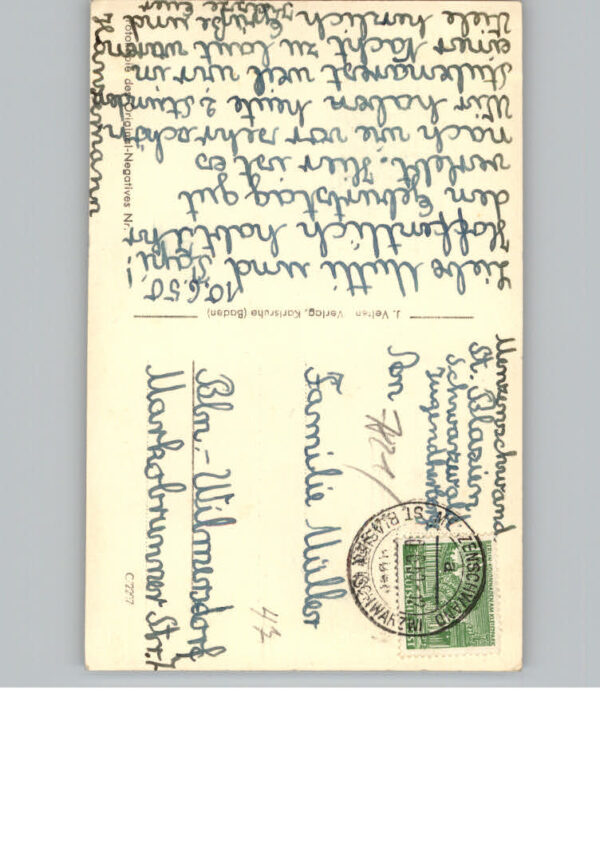 10.6.50.
Liebe Mutti und Papi!
Hoffentlich habt ihr
den Geburtstag gut
verlebt. Hier ist es
nach wie vor sehr schön
Wir haben heute 2 Stunden
Stubenarest weil wir in
einer Nacht zu laut waren
Viele herzlich
Grüße und
Küsse Euer
Hansjermann
Fotokopie des Original-Negatives Nr.
J. Velten Verlag, Karlsruhe (Baden)
Menzenschwand
St. Blasien
Schwarzwald
Jugendherberge
Familie Müller
Bln.-Wilmersdorf
Markobrunner Str.
MENZENSCHWAND
ST. BLASIEN
(SCHWARZW)
a
C 2227